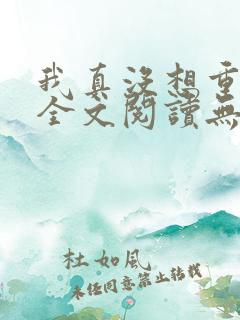 我真沒想重
全文閱讀無
杜如風
未经同意禁止转载